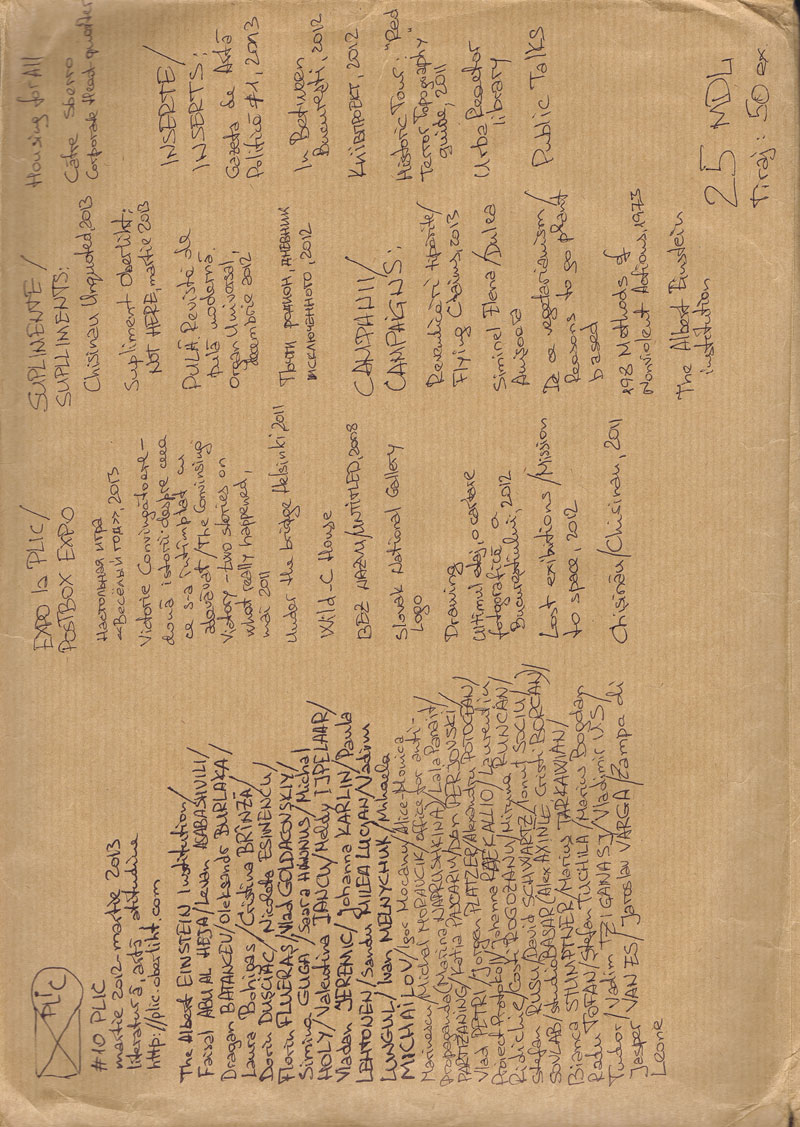 PLIC
#10 PLIC
martie 2012-martie 2013
literatură, artă, atitudine
http://plic.oberliht.com
The Albert EINSTEIN Institution/
Faisal ABU AL HEJA/Levan ASABASHVILI/
Dragan BATANCEV/Oleksandr BURLAKA/
Laura Bohigas/Cristina BRÎNZĂ/
Dorin DUȘCIAC/Nicoleta ESINENCU/
Florin FLUERAȘ/Vlad GOLDAKOVSKIY/
Simina GUGA/Saara HANNUS/Michal
HOLY/Valentina IANCU/Maddy IJPELAAR/
Vladan JEREMIC/Johanna KARLIN/Paula
LEHTONEN/Sandu MILEA LUCIAN/Vadim
LUNGUL/Ivan MELNYCHUK/Mihaela
MICHAILOV/Igor Mocanu/Alice-Monica
Marinescu/Michal MORAUCIK/office for anti-
propaganda/Marina NAPRUSHKINA/Lala Panait/
PARTIZANING/Katia PASCARIU/Dan PERJOVSKI/
Vlad PETRI/Jorgen PLATZER/Alexandru POTOCEAN/
Project Protokol/Johanna RAEKALLIO/Laurentiu
Ridichie/Costi ROGOZANU/Mitzura RUNCAN/
Stefan RUSU/David SCHWARTZ/Ionut SOCIU/
SOVLAB/studioBASAR/Alex AXINTE Cristi BORCAN/
Bianca STUMPTNER/Marius TARKAWIAN/
Radu TOFAN/Stefan TUCHILA/Marius Bogdan
Tudor/Vadim TZIGANAȘ/Vladimir US/
Jasper VAN ES/Jaroslav VARGA/Zampa di
Leone
EXPO la PLIC/
POSTBOX EXPO
Настольная игра
«Весёлый год», 2013
Victorie Convingătoare -
două istorii despre ceea
ce s-a întîmplat cu
adevărat/The Convinsing
Victory - two stories on
what really happened,
mai 2011
Under the bridge Helsinki 2011
Wild-C House
BEZ NAZVU/UNTITLED, 2008
Slovak National Gallery
Logo
Drawing
Ultimul etaj, o cartare
fotografică a
Bucureștiului, 2012
Lost exibitions/Mission
to space, 2012
Chișinău/Chisinau, 2011
SUPLINENTE/
SUPLLIMENTS:
Chisinau Unquoted, 2013
Supliment Oberliht:
NOT HERE, martie 2013
PULĂ Revistă de
pulă modernă.
Organ Universal,
decembrie 2012
Почти родион, дневник
исключенного, 2012
CAMPANII/
CAMPAIGNS:
Revendicări tipărite/
Flying Claims, 2013
Siminel Elena/Dulea
Anișoara
De ce vegetarianism/
Reasons to go plant
based
198 Methods of
Nonviolent Actions, 1973
The Albert Einstein
institution
Housing for All
Către Sberro
Corporate Head quarter
INSERTE/
INSERTS:
Gazeta de Artă
Politică #1, 2013
In Between
București, 2012
КНІВПРОЕКТ, 2012
Historic Tour: "Red
Terror Topography"
guide, 2011
Urban Reactor
library
Public Talks
25 MDL
Tiraj: 50 ex